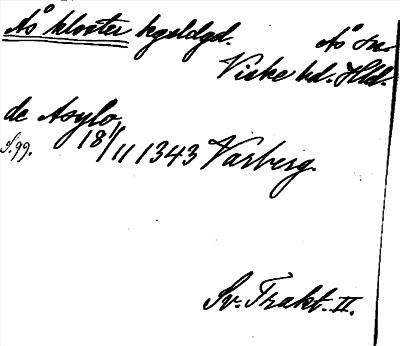 Ås kloster kgsldgd. Ås sn.
Viske hd. Hld.
de Asylo,
s. 99. 18/11 1343 Varberg.
Sv. Trakt. II.